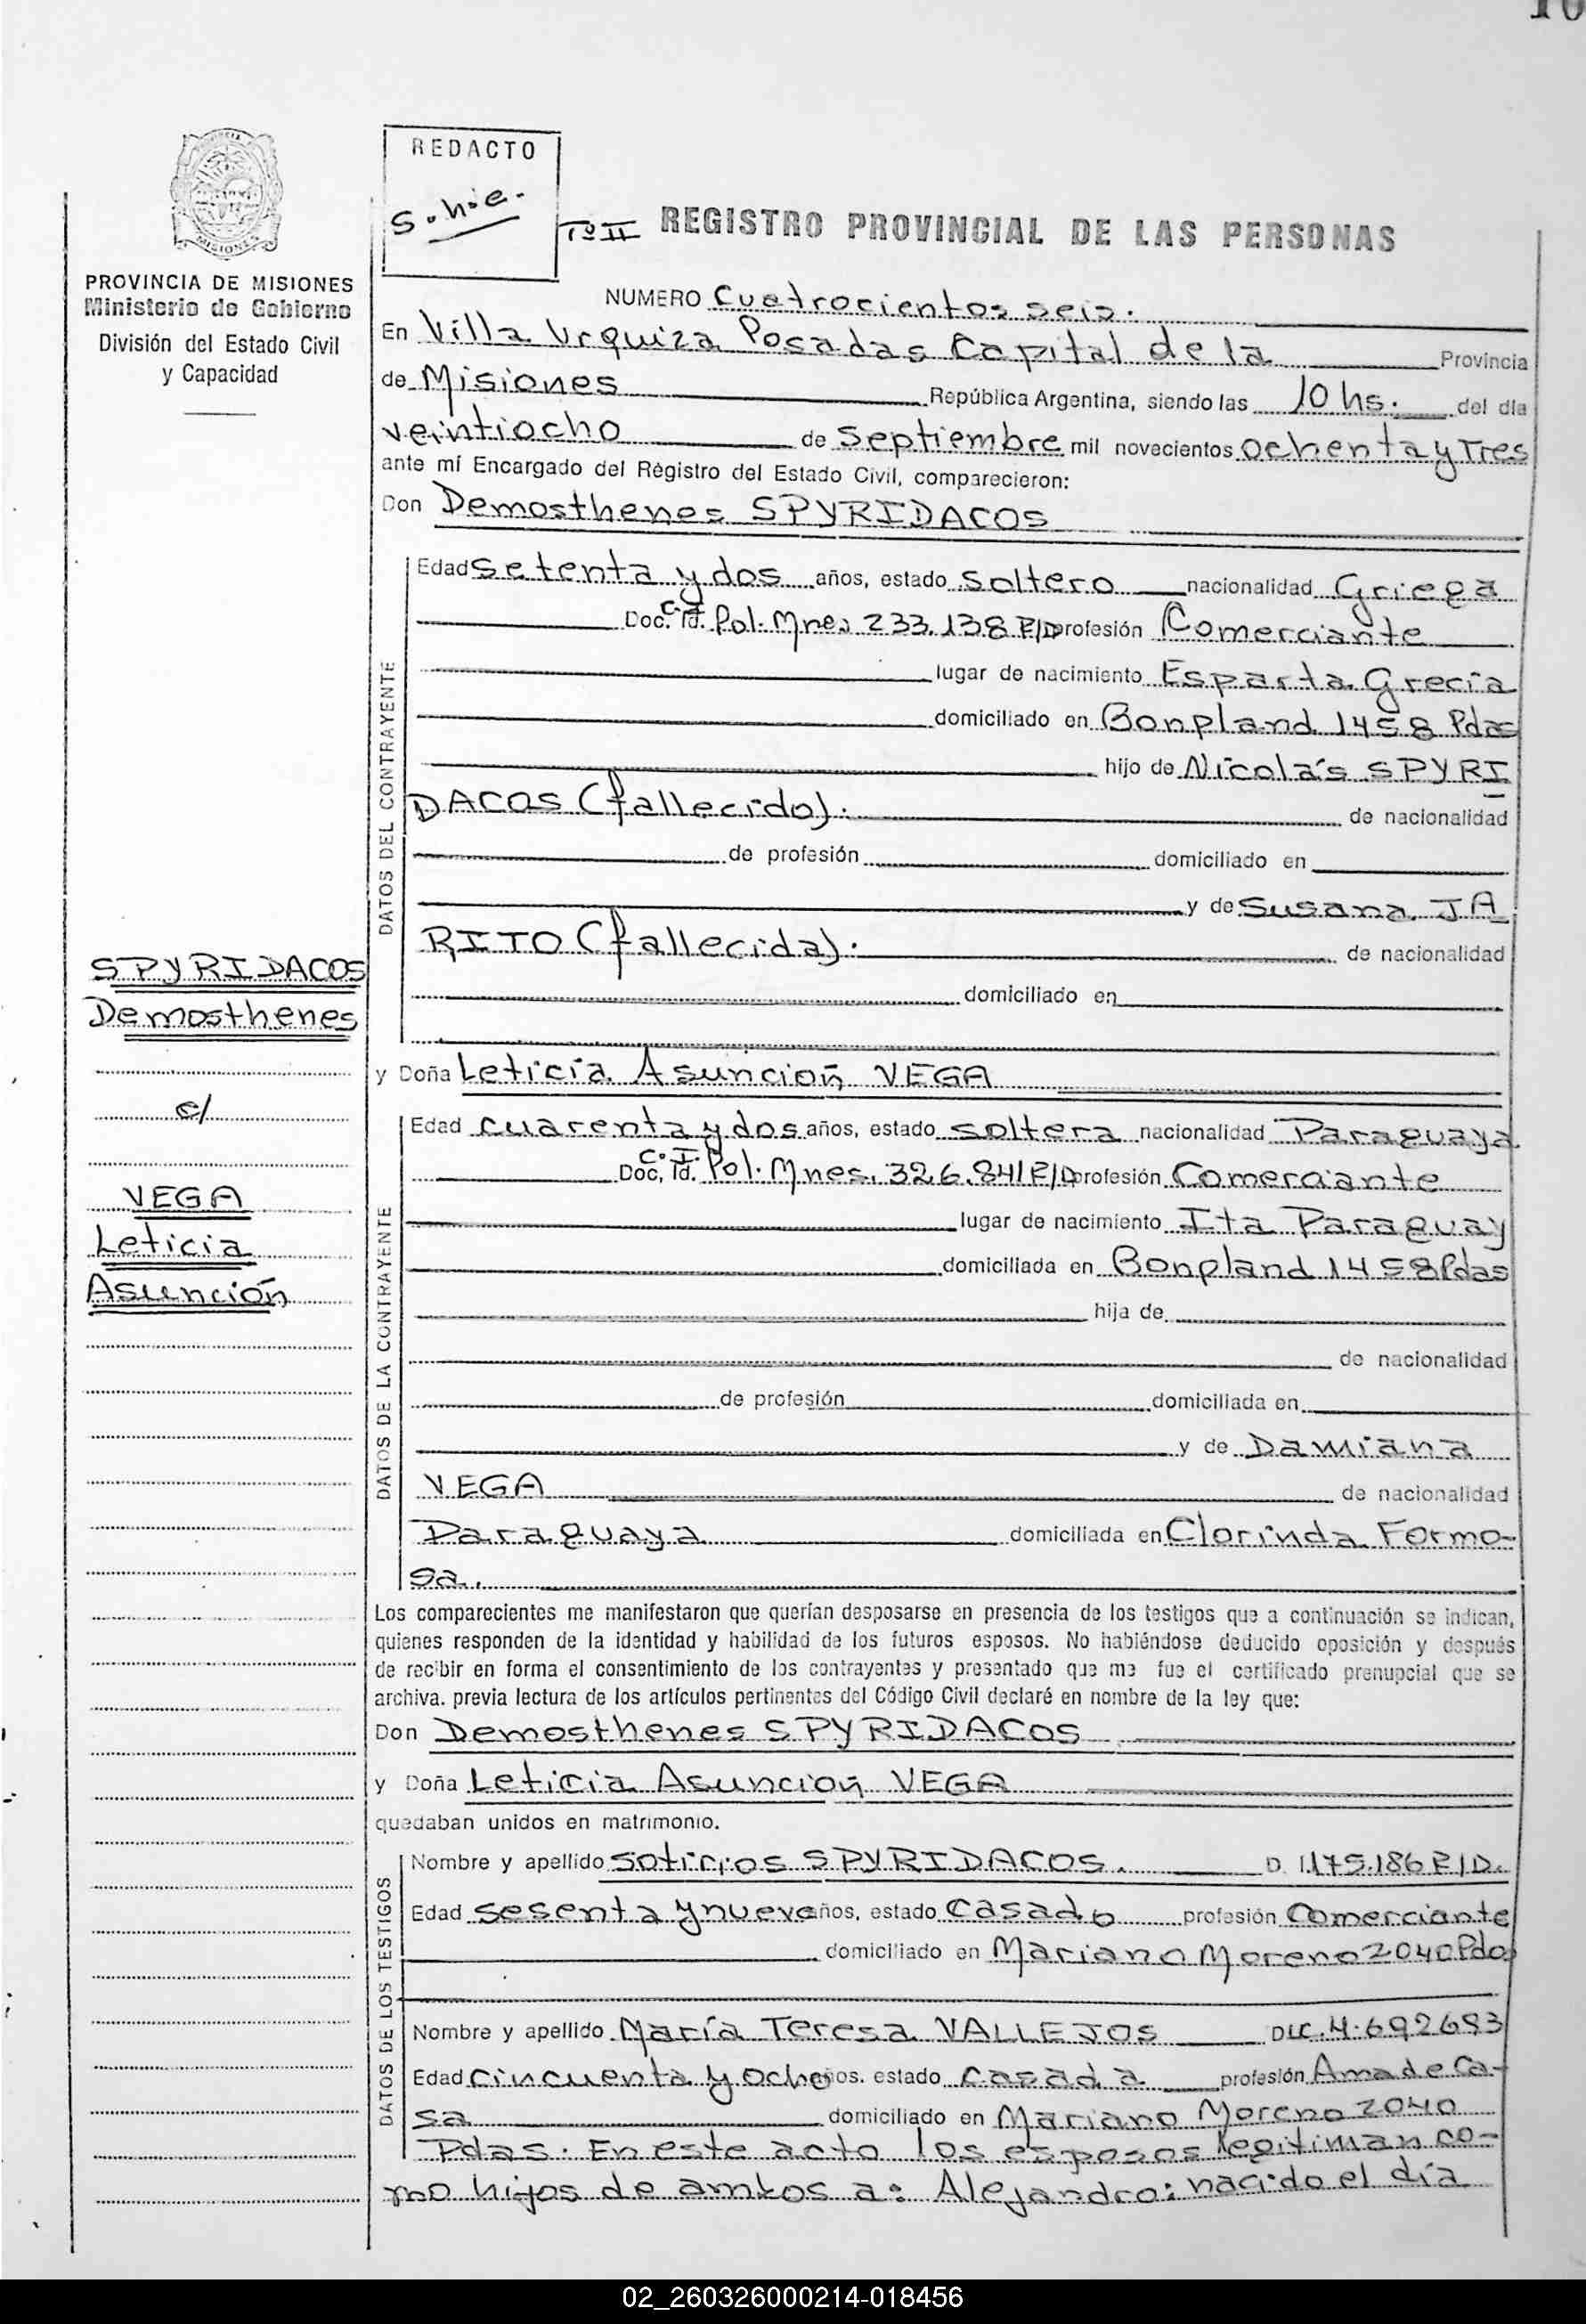 REDACTO
MISIONES
Tº II REGISTRO PROVINCIAL DE LAS PERSONAS
PROVINCIA DE MISIONES
Ministerio de Gobierno
División del Estado Civil
y Capacidad
NUMERO Cuatrocientos seis.
En Villa Urquiza Posadas Capital de la Provincia
de Misiones República Argentina, siendo las 10 hs. del día
veintiocho de Septiembre mil novecientos ochenta y Tres
ante mí Encargado del Registro del Estado Civil, comparecieron:
Don Demosthenes SPYRIDACOS
DATOS DEL CONTRAYENTE
Edad Setenta y dos años, estado soltero nacionalidad Griega
Doc. Id. C. I. Pol. Mnes 233.138 E/D profesión Comerciante
lugar de nacimiento Esparta Grecia
domiciliado en Bonpland 1458 Pdas
hijo de Nicolás SPYRI
DACOS (fallecido). de nacionalidad
de profesión domiciliado en
y de Susana JA
RITO (fallecida). de nacionalidad
domiciliado en
SPYRIDACOS
Demosthenes
c/
VEGA
Leticia
Asunción
y Doña Leticia Asunción VEGA
DATOS DE LA CONTRAYENTE
Edad cuarenta y dos años, estado soltera nacionalidad Paraguaya
Doc. Id. C. I. Pol. Mnes. 326.841 E/D profesión Comerciante
lugar de nacimiento Ita Paraguay
domiciliada en Bonpland 1458 Pdas
hija de
de nacionalidad
de profesión domiciliada en
y de Damiana
VEGA de nacionalidad
Paraguaya domiciliada en Clorinda Formo-
sa.
Los comparecientes me manifestaron que querían desposarse en presencia de los testigos que a continuación se indican,
quienes responden de la identidad y habilidad de los futuros esposos. No habiéndose deducido oposición y después
de recibir en forma el consentimiento de los contrayentes y presentado que me fue el certificado prenupcial que se
archiva. previa lectura de los artículos pertinentes del Código Civil declaré en nombre de la ley que:
Don Demosthenes SPYRIDACOS
y Doña Leticia Asunción VEGA
quedaban unidos en matrimonio.
DATOS DE LOS TESTIGOS
Nombre y apellido Sotirios SPYRIDACOS. D. 1.175.186 E/D.
Edad sesenta y nueve años, estado Casado profesión Comerciante
domiciliado en Mariano Moreno 2040 Pdas
Nombre y apellido María Teresa VALLEJOS D LC. 4.692683
Edad cincuenta y ocho años. estado casada profesión Ama de Ca-
sa domiciliado en Mariano Moreno 2040
Pdas. En este acto los esposos legitiman co-
mo hijos de ambos a: Alejandro: nacido el día
02_260326000214-018456